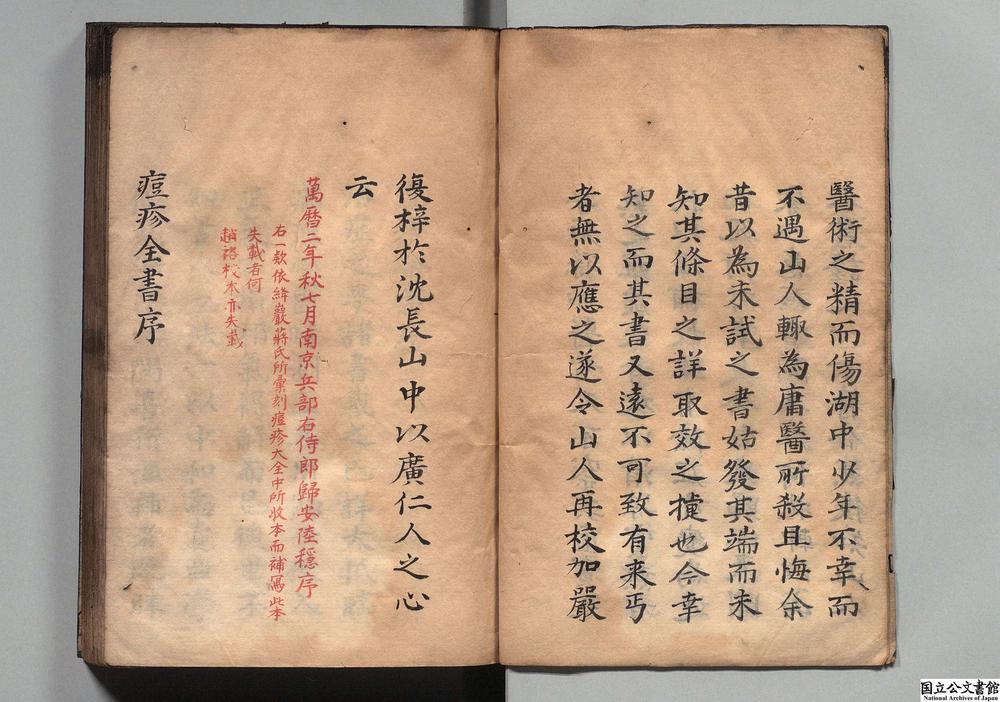 醫術之精而傷湖中少年不幸而
不遇山人輙為庸醫所殺且悔余
昔以為未試之書姑發其端而未
知其條目之詳取效之捷也今幸
知之而其書又遠不可致有来丐
者無以應之遂令山人再校加嚴
復梓於沈長山中以廣仁人之心
云
萬曆二年秋七月南京兵部右侍郎歸安陸穩序
右一欸依絳巖蔣氏所彙刻痘疹大全中所收本而補寫此本
失載者何
越裕校本亦失載
痘疹全書序
国立公文書館
National Archives of Japan